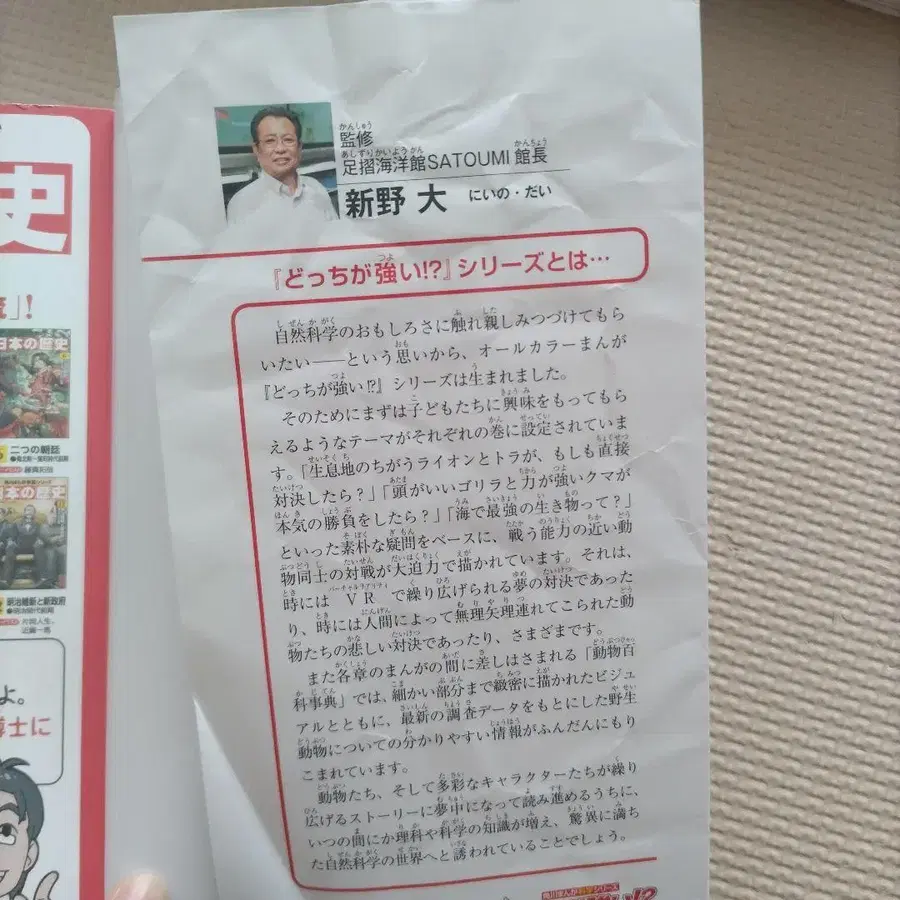 監修
足摺海洋館SATOUMI 館長
新野 大 にいの・だい
『どっちが強い!?』シリーズとは…
自然科学のおもしろさに触れ親しみつづけてもら
いたい――という思いから、オールカラーまんが
『どっちが強い!?』シリーズは生まれました。
そのためにまずは子どもたちに興味をもってもら
えるようなテーマがそれぞれの巻に設定されていま
す。「生息地のちがうライオンとトラが、もしも直接
対決したら?」「頭がいいゴリラと力が強いクマが
本気の勝負をしたら?」「海で最強の生き物って?」
といった素朴な疑問をベースに、戦う能力の近い動
物同士の対戦が大迫力で描かれています。それは、
時にはVRで繰り広げられる夢の対決であった
り、時には人間によって無理矢理連れてこられた動
物たちの悲しい対決であったり、さまざまです。
また各章のまんがの間に差しはさまれる「動物百
科事典」では、細かい部分まで緻密に描かれたビジュ
アルとともに、最新の調査データをもとにした野生
動物についての分かりやすい情報がふんだんにもり
こまれています。
動物たち、そして多彩なキャラクターたちが繰り
広げるストーリーに夢中になって読み進めるうちに、
いつの間にか理科や科学の知識が増え、驚異に満ち
た自然科学の世界へと誘われていることでしょう。
角川まんが科学シリーズ
史
」!
日本の歴史
二つの朝廷
日本の歴史
明治維新と新政府
よ。
博士に